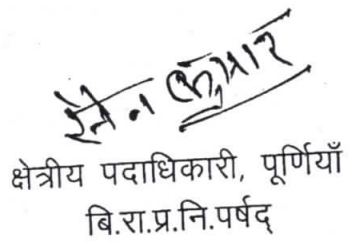 कुमार
क्षेत्रीय पदाधिकारी, पूर्णियाँ
बि.रा.प्र.नि.पर्षद्